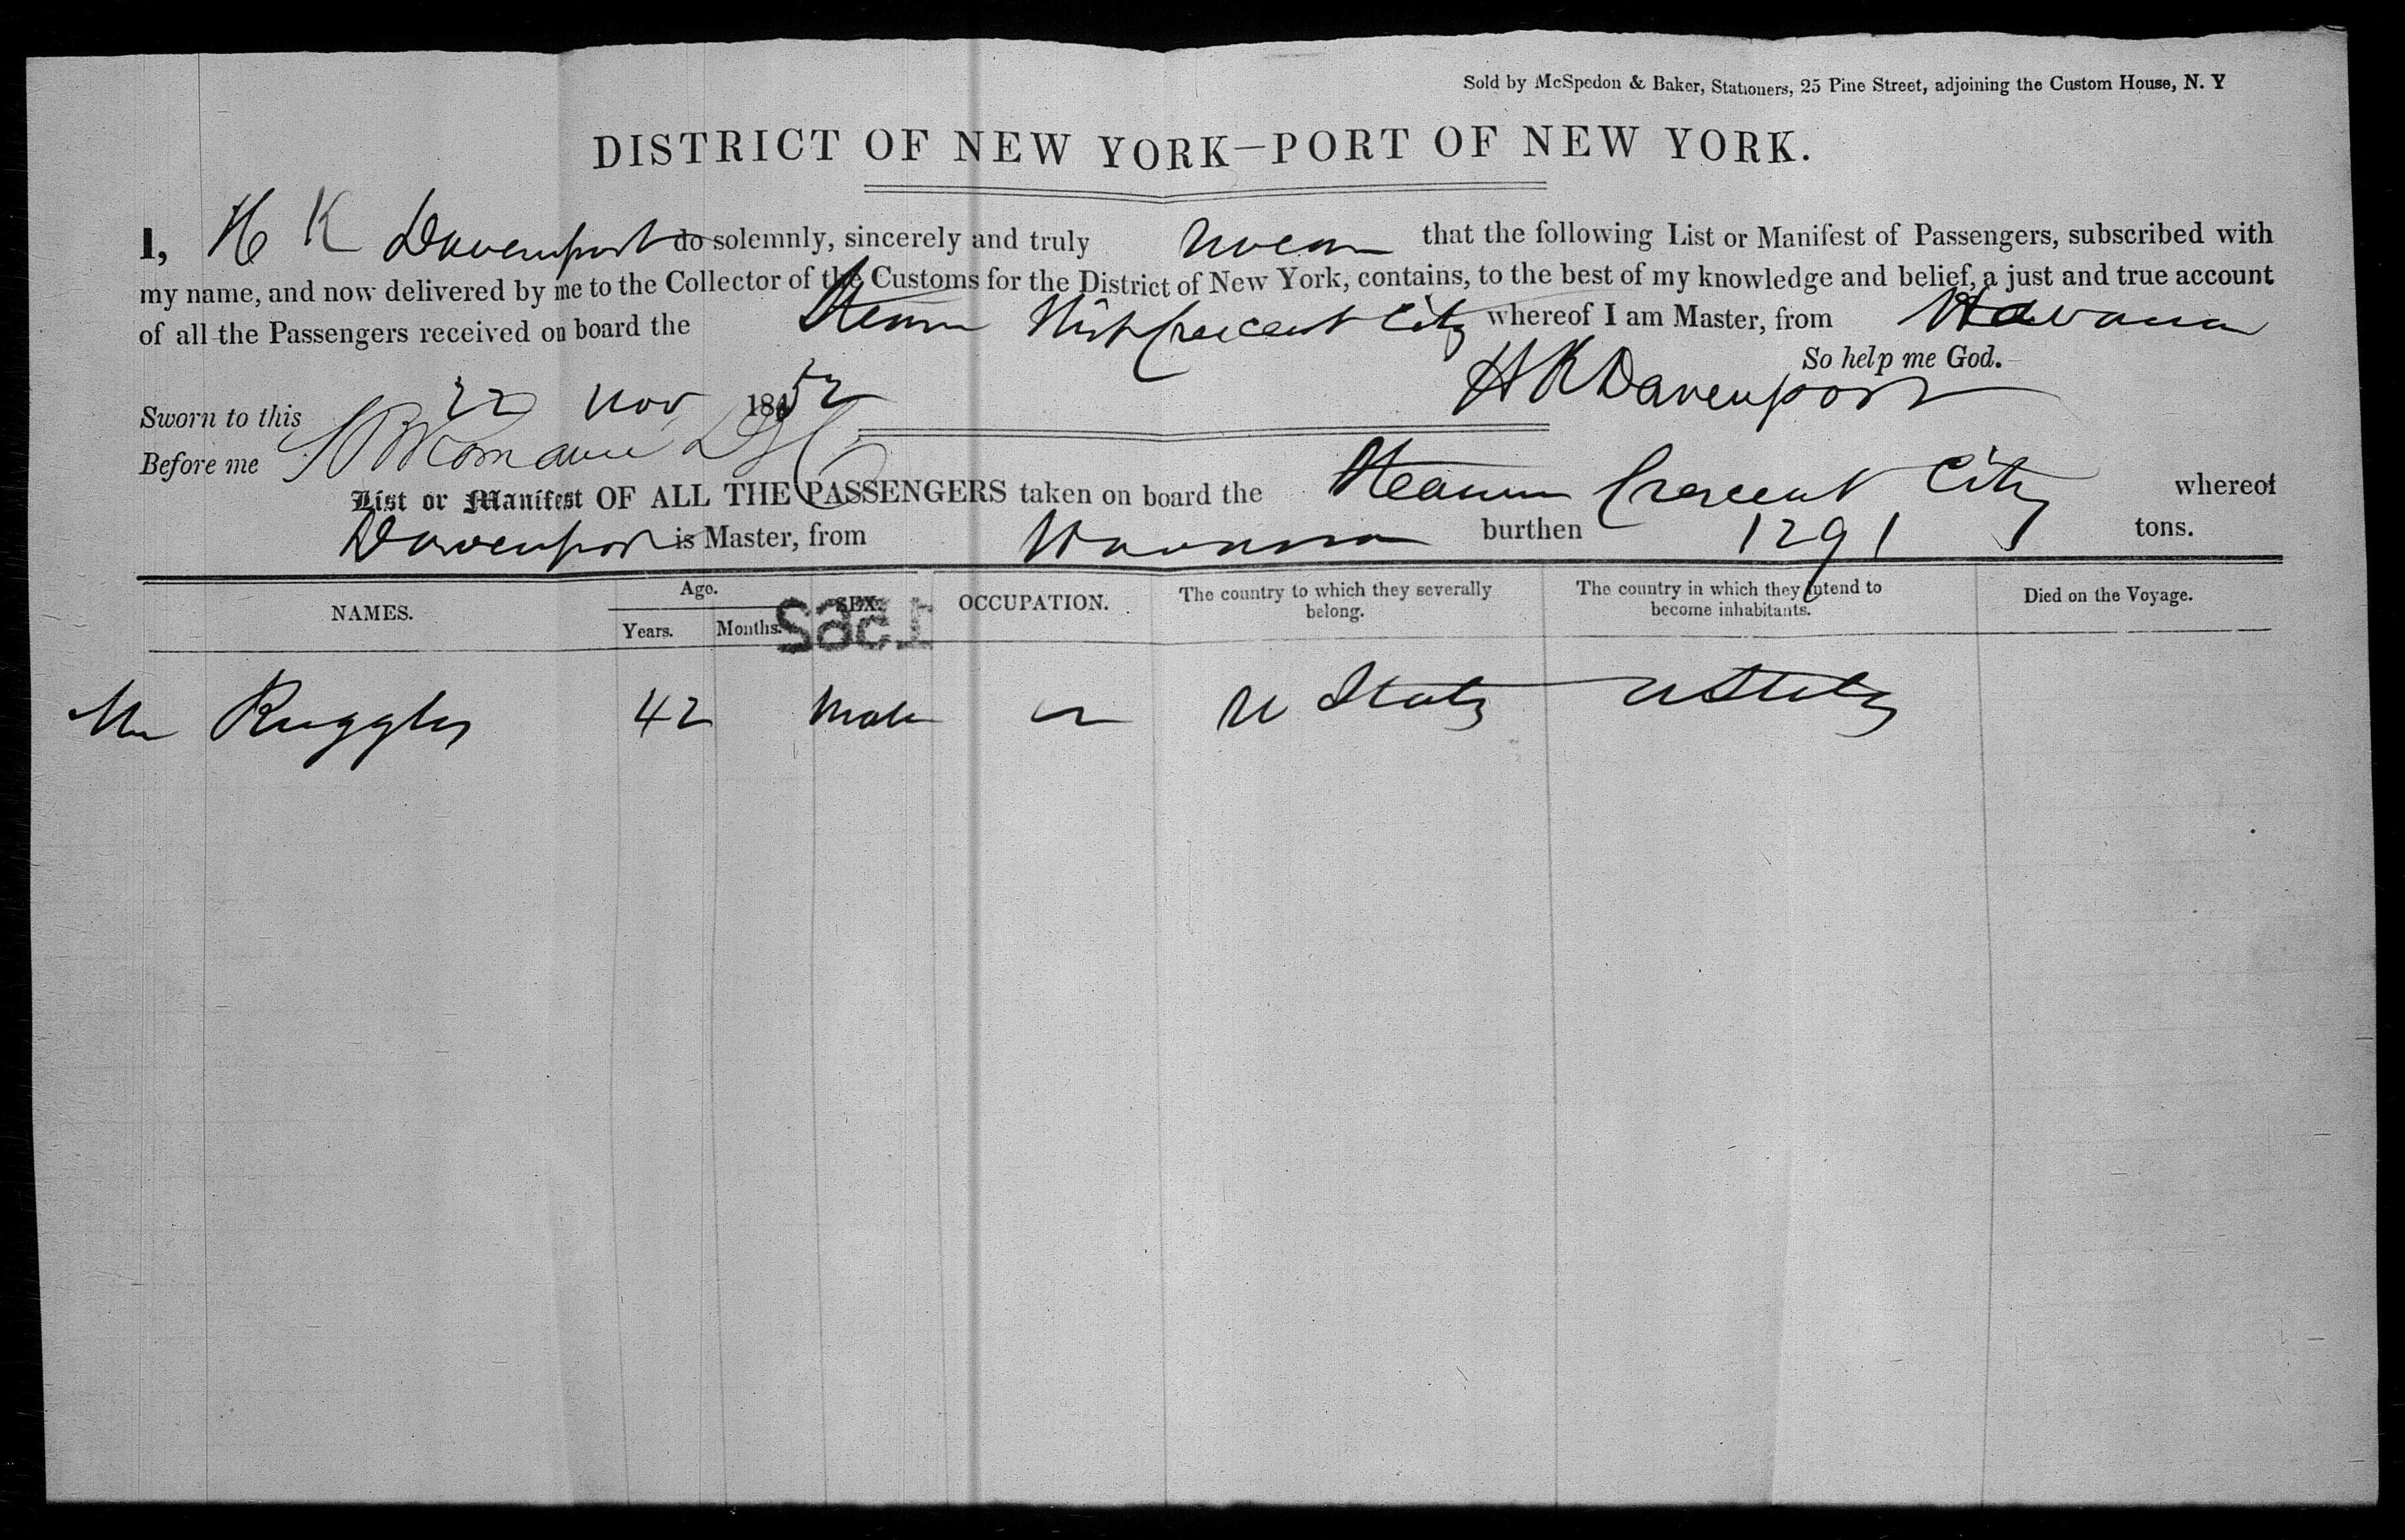 Sold by McSpedon & Baker, Stationers, 25 Pine Street, adjoining the Custom House, N. Y
DISTRICT OF NEW YORK—PORT OF NEW YORK.
I, H K Davenport do solemnly, sincerely and truly swear that the following List or Manifest of Passengers, subscribed with
my name, and now delivered by me to the Collector of the Customs for the District of New York, contains, to the best of my knowledge and belief, a just and true account
of all the Passengers received on board the Steam Ship Crescent City whereof I am Master, from Havana
So help me God.
Sworn to this 22 Nov 1852 H K Davenport
Before me
List or Manifest OF ALL THE PASSENGERS taken on board the Steamer Crescent City whereof
Davenport is Master, from Havana burthen 1291 tons.
NAMES. Age. Years. Months. SEX. OCCUPATION. The country to which they severally belong. The country in which they intend to become inhabitants. Died on the Voyage.
Mr Ruggles 42 Male U States U States